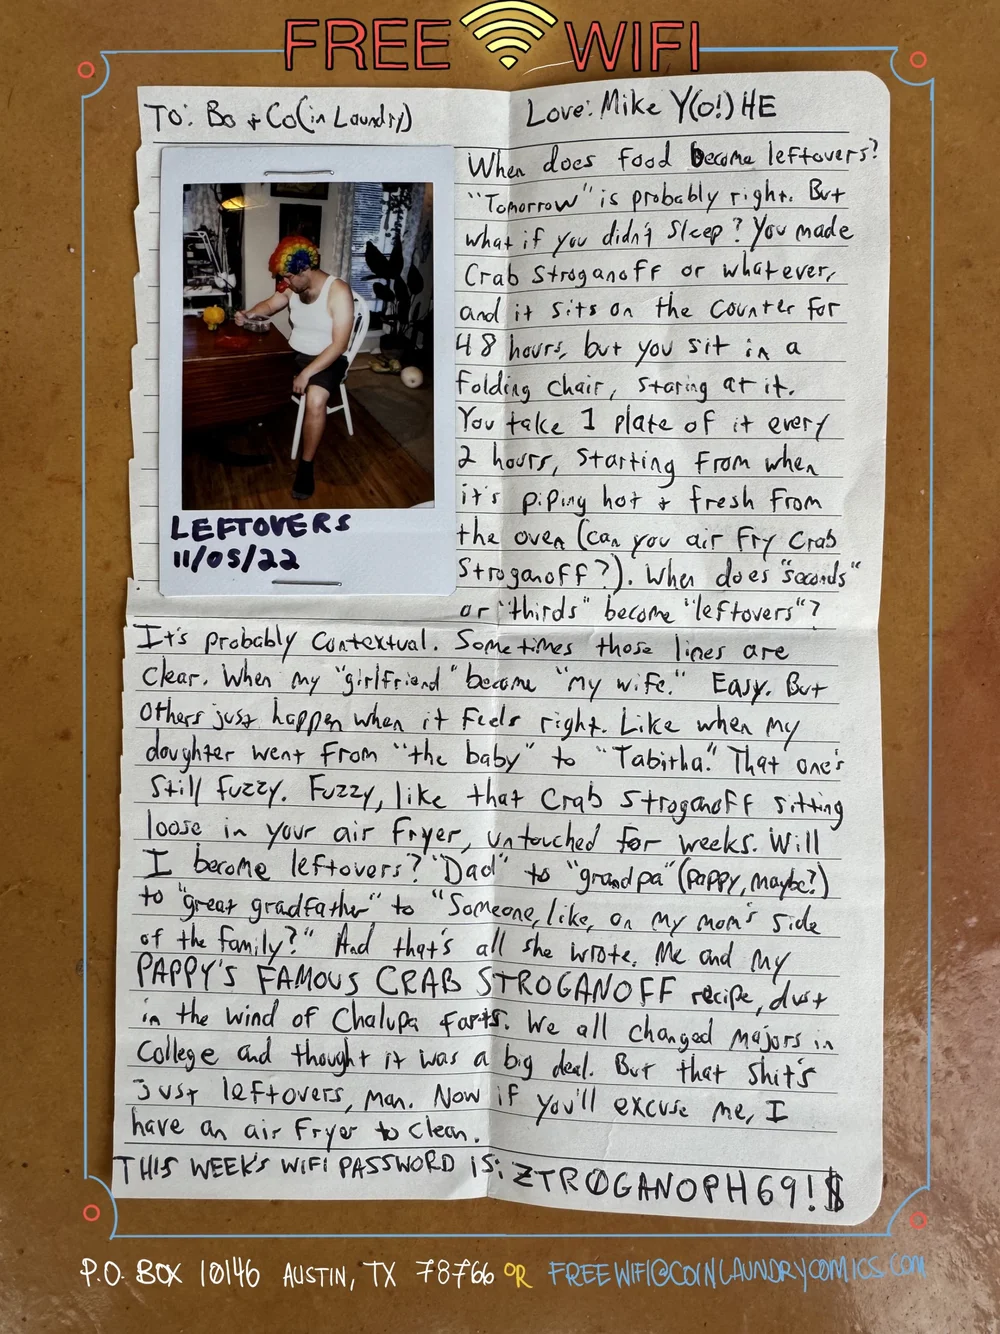 FREE WIFI
To: Bo + Co(in Laundry)
Love: Mike Y(o!)HE
When does food become leftovers?
"Tomorrow" is probably right. But
what if you didn't sleep? You made
Crab Stroganoff or whatever,
and it sits on the counter for
48 hours, but you sit in a
folding chair, staring at it.
You take 1 plate of it every
2 hours, starting from when
it's piping hot + fresh from
the oven (can you air fry Crab
Stroganoff?). When does "seconds"
or "thirds" become "leftovers"?
LEFTOVERS
11/05/22
It's probably contextual. Sometimes those lines are
clear. When my "girlfriend" became "my wife." Easy. But
others just happen when it feels right. Like when my
daughter went from "the baby" to "Tabitha." That one's
still fuzzy. Fuzzy, like that Crab Stroganoff sitting
loose in your air fryer, untouched for weeks. Will
I become leftovers? "Dad" to "grandpa" (pappy, maybe?)
to "great gradfather" to "Someone, like, on my mom's side
of the family?" And that's all she wrote. Me and my
PAPPY'S FAMOUS CRAB STROGANOFF recipe, dust
in the wind of Chalupa farts. We all changed majors in
College and thought it was a big deal. But that shit's
just leftovers, man. Now if you'll excuse me, I
have an air fryer to clean.
THIS WEEK'S WIFI PASSWORD iS: ZTRØGANOPH69!$
P.O. BOX 10146 AUSTIN, TX 78766 OR FREEWIFI@COINLAUNDRYCOMICS.COM